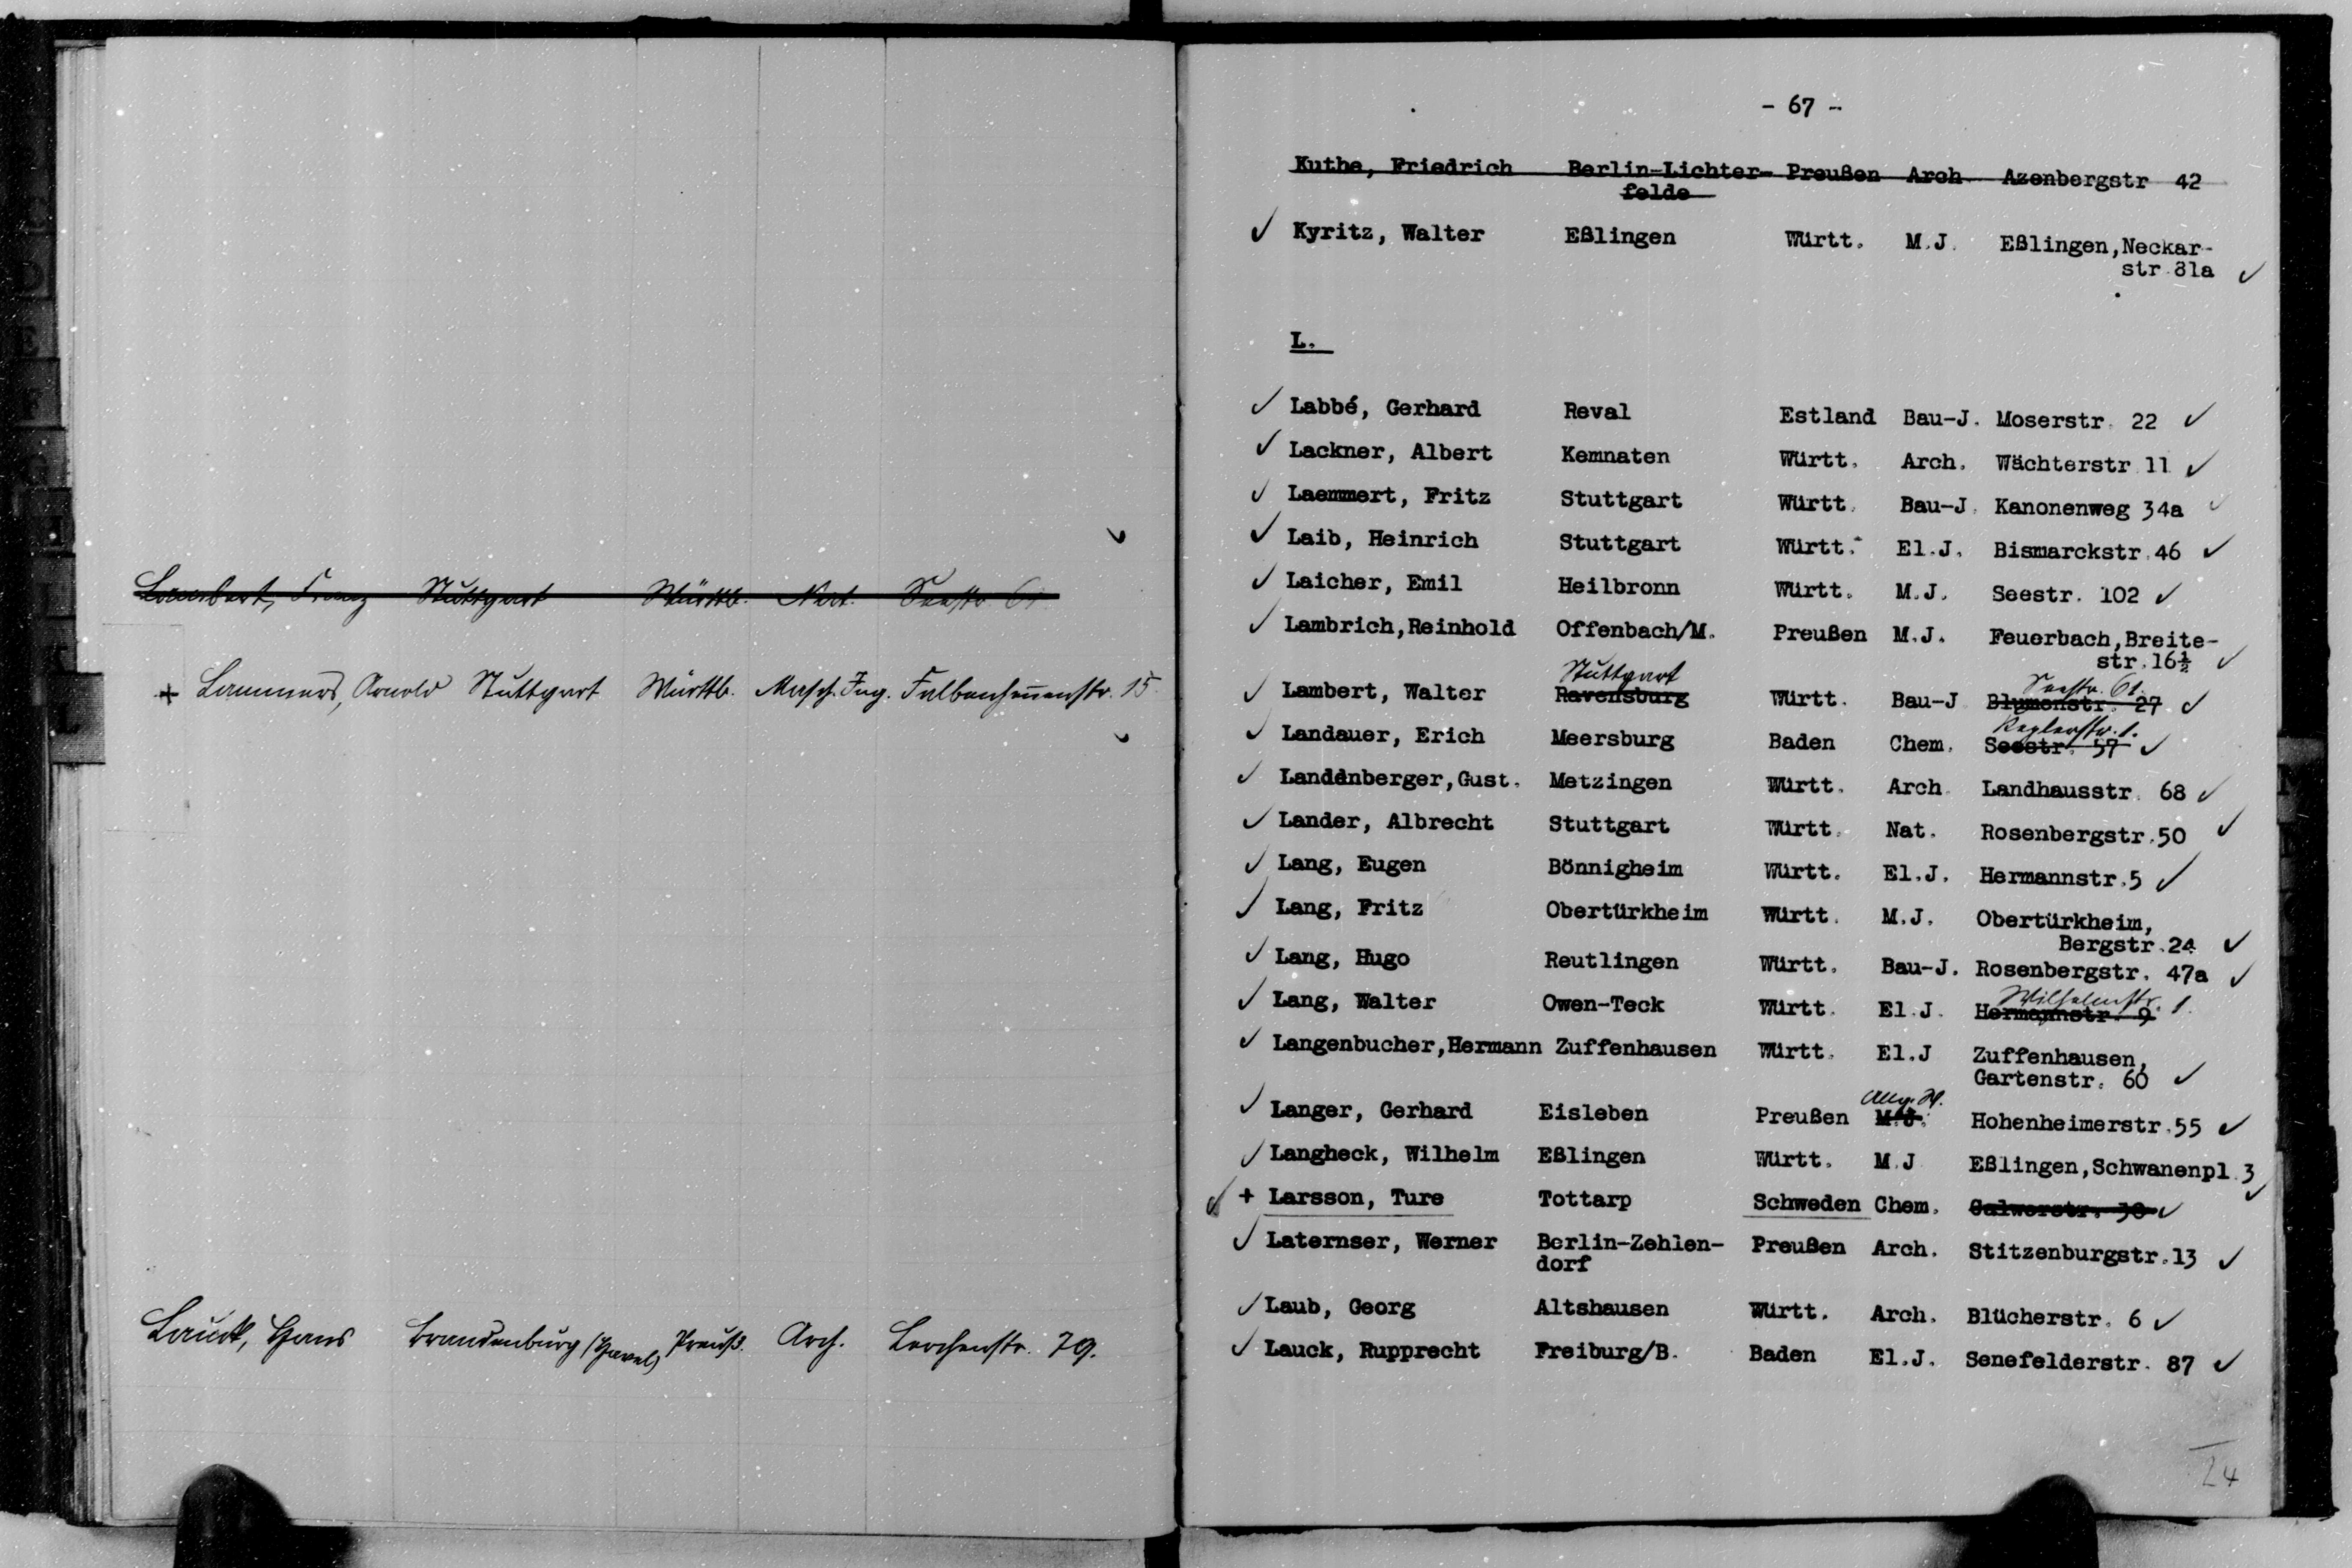 Lambert, Franz Stuttgart Württb. Nat. Seestr. 61.
+ Lammers, Arnold Stuttgart Württb. Masch. Ing. Falkenhennenstr. 15
Lauck, Hans Brandenburg (Havel) Preuß. Arch. Lerchenstr. 79.
- 67 -
Kuthe, Friedrich Berlin-Lichter- Preußen Arch Azenbergstr 42
felde
✓ Kyritz, Walter Eßlingen Württ. M.J. Eßlingen,Neckar-
str 81a ✓
L.
✓ Labbé, Gerhard Reval Estland Bau-J. Moserstr. 22 ✓
✓ Lackner, Albert Kemnaten Württ. Arch. Wächterstr 11 ✓
✓ Laemmert, Fritz Stuttgart Württ. Bau-J. Kanonenweg 34a ✓
✓ Laib, Heinrich Stuttgart Württ. El.J. Bismarckstr.46 ✓
✓ Laicher, Emil Heilbronn Württ. M.J. Seestr. 102 ✓
✓ Lambrich,Reinhold Offenbach/M. Preußen M.J. Feuerbach,Breite-
str.16½ ✓
Stuttgart Seestr. 61.
✓ Lambert, Walter Ravensburg Württ. Bau-J Blumenstr. 27 ✓
Keplerstr. 1.
✓ Landauer, Erich Meersburg Baden Chem. Seestr. 57 ✓
✓ Landenberger,Gust. Metzingen Württ. Arch. Landhausstr. 68 ✓
✓ Lander, Albrecht Stuttgart Württ. Nat. Rosenbergstr.50 ✓
✓ Lang, Eugen Bönnigheim Württ. El.J. Hermannstr.5 ✓
✓ Lang, Fritz Obertürkheim Württ. M.J. Obertürkheim,
Bergstr.24 ✓
✓ Lang, Hugo Reutlingen Württ. Bau-J. Rosenbergstr. 47a ✓
Wilhelmstr. 1.
✓ Lang, Walter Owen-Teck Württ. El.J. Hermannstr. 9
✓ Langenbucher,Hermann Zuffenhausen Württ. El.J Zuffenhausen,
Gartenstr. 60 ✓
Allg.
✓ Langer, Gerhard Eisleben Preußen M.J. Hohenheimerstr.55 ✓
✓ Langheck, Wilhelm Eßlingen Württ. M.J Eßlingen,Schwanenpl.3 ✓
✓ + Larsson, Ture Tottarp Schweden Chem. Calwerstr. 38 ✓
✓ Laternser, Werner Berlin-Zehlen- Preußen Arch. Stitzenburgstr.13 ✓
dorf
✓ Laub, Georg Altshausen Württ. Arch. Blücherstr. 6 ✓
✓ Lauck, Rupprecht Freiburg/B. Baden El.J. Senefelderstr. 87 ✓
24